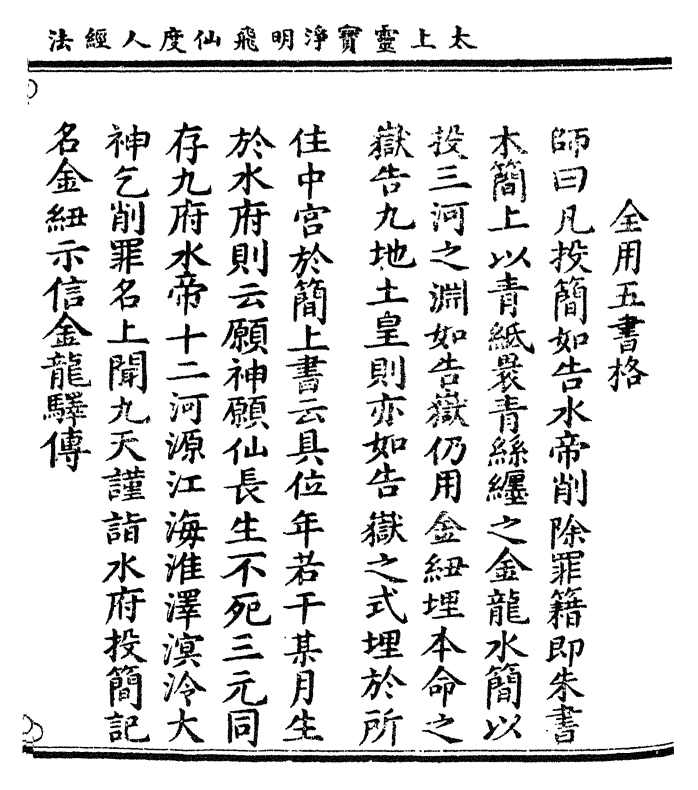 太上靈寶淨明飛仙度人經法
全用五書格
師曰凡投簡如告水帝削除罪籍即朱書
木簡上以青紙裹青絲纏之金龍水簡以
投三河之淵如告嶽仍用金紐埋本命之
嶽告九地土皇則亦如告嶽之式埋於所
住中宮於簡上書云具位年若干某月生
於水府則云願神願仙長生不死三元同
存九府水帝十二河源江海淮澤溟泠大
神乞削罪名上聞九天謹詣水府投簡記
名金紐示信金龍驛傳